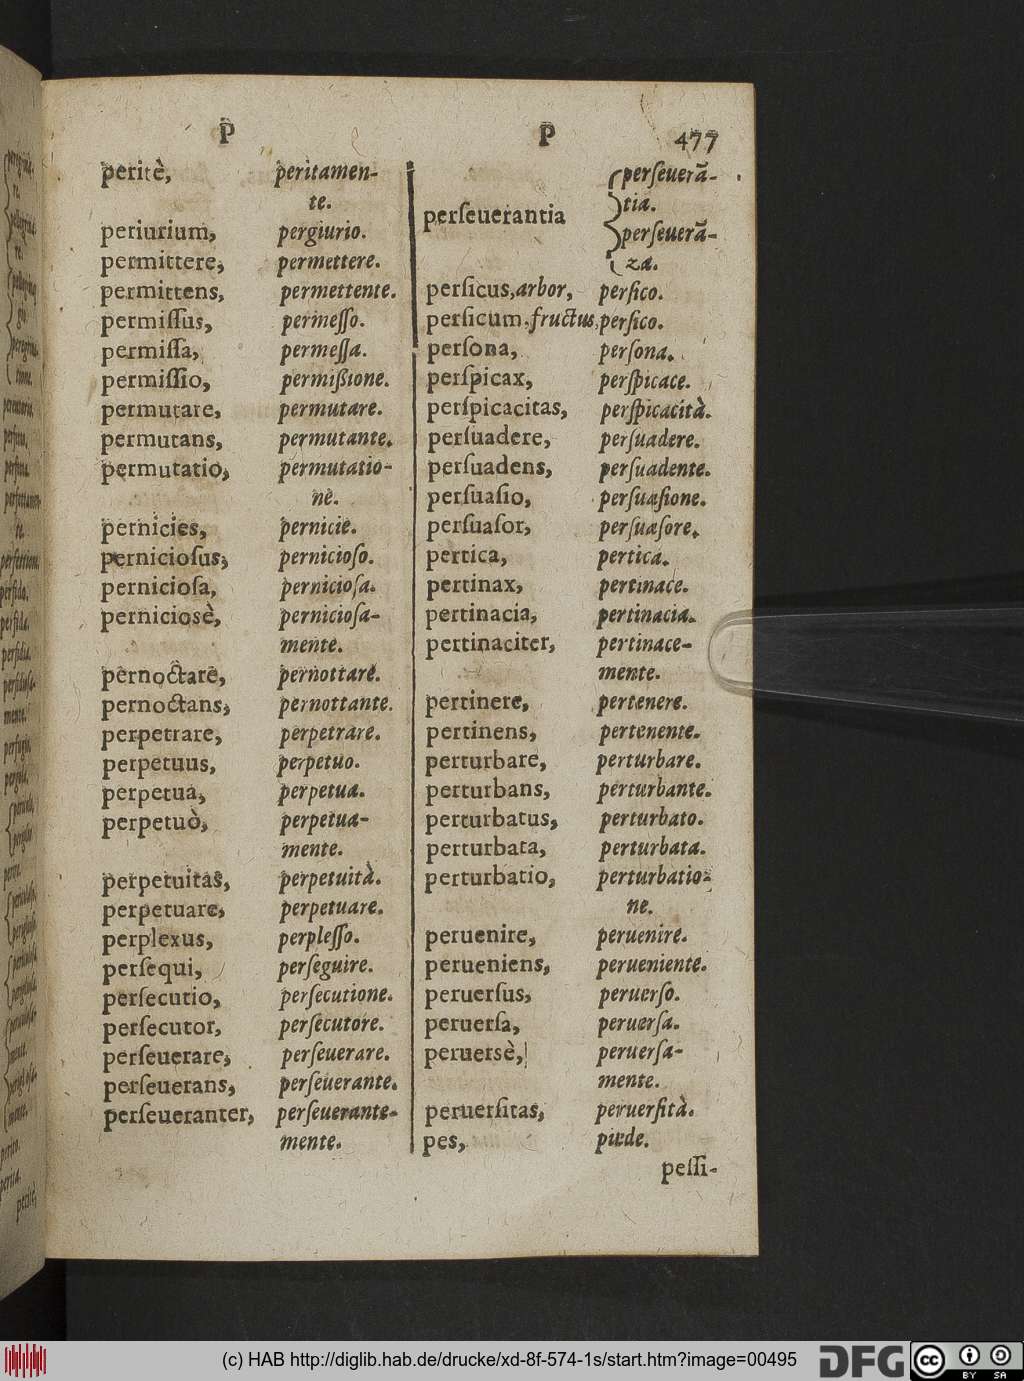 P P 477
peritè, peritamen-
te.
periurium, pergiurio.
permittere, permettere.
permittens, permettente.
permiſſus, permeſſo.
permiſſa, permeſſa.
permiſſio, permißione.
permutare, permutare.
permutans, permutante.
permutatio, permutatio-
ne.
pernicies, pernicie.
pernicioſus, pernicioſo.
pernicioſa, pernicioſa.
perniciosè, pernicioſa-
mente.
pernoctare, pernottare.
pernoctans, pernottante.
perpetrare, perpetrare.
perpetuus, perpetuo.
perpetua, perpetua.
perpetuò, perpetua-
mente.
perpetuitas, perpetuità.
perpetuare, perpetuare.
perplexus, perpleſſo.
perſequi, perſeguire.
perſecutio, perſecutione.
perſecutor, perſecutore.
perſeuerare, perſeuerare.
perſeuerans, perſeuerante.
perſeueranter, perſeuerante-
mente.
perſeuerã-
tia.
perſeuerantia
perſeuerã-
za.
perſicus, arbor, perſico.
perſicum. fructus, perſico.
perſona, perſona.
perſpicax, perſpicace.
perſpicacitas, perſpicacità.
perſuadere, perſuadere.
perſuadens, perſuadente.
perſuaſio, perſuaſione.
perſuaſor, perſuaſore.
pertica, pertica.
pertinax, pertinace.
pertinacia, pertinacia.
pertinaciter, pertinace-
mente.
pertinere, pertenere.
pertinens, pertenente.
perturbare, perturbare.
perturbans, perturbante.
perturbatus, perturbato.
perturbata, perturbata.
perturbatio, perturbatio-
ne.
peruenire, peruenire.
perueniens, perueniente.
peruerſus, peruerſo.
peruerſa, peruerſa.
peruersè, peruerſa-
mente.
peruerſitas, peruerſità.
pes, piede.
peſſi-
(c) HAB http://diglib.hab.de/drucke/xd-8f-574-1s/start.htm?image=00495
DFG
cc BY SA